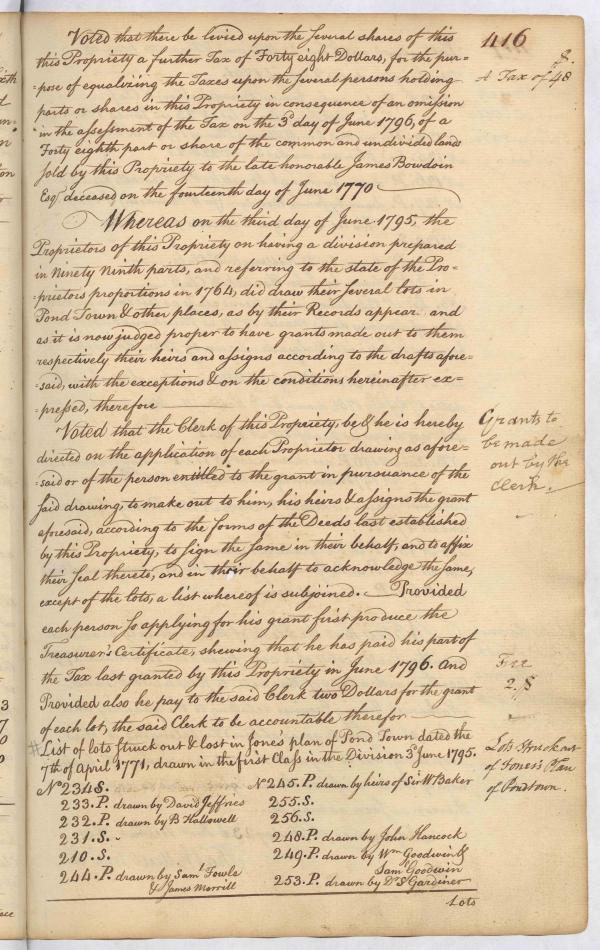 416
Voted that there be levied upon the several shares of this
this Propriety a further Tax of Forty eight Dollars, for the pur=
=pose of equalizing the Taxes upon the several persons holding
parts or shares in this Propriety in consequence of an omission
in the assessment of the Tax on the 3d day of June 1796, of a
Forty eighth part or share of the common and undivided lands
sold by this Propriety to the late honorable James Bowdoin
Esqr deceased on the fourteenth day of June 1770
$.
A Tax of 48
Whereas on the third day of June 1795, the
Proprietors of this Propriety on having a division prepared
in Ninety Ninth parts, and referring to the state of the Pro=
=prietors proportions in 1764, did draw their several lots in
Pond Town & other places, as by their Records appear. and
as it is now judged proper to have grants made out to them
respectively their heirs and assigns according to the drafts afore=
=said, with the exceptions & on the conditions hereinafter ex=
=pressed, therefore
Voted that the Clerk of this Propriety, be & he is hereby
directed on the application of each Proprietor drawing as afore=
=said or of the person entitled to the grant in pursuance of the
said drawing, to make out to him, his heirs & assigns the grant
aforesaid, according to the forms of the Deeds last established
by this Propriety, to sign the same in their behalf, and to affix
their Seal thereto, and in their behalf to acknowledge the same,
except of the lots, a list whereof is subjoined. Provided
each person so applying for his grant first produce the
Treasurer's Certificate, shewing that he has paid his part of
the Tax last granted by this Propriety in June 1796. And
Provided also he pay to the said Clerk two Dollars for the grant
of each lot, the said Clerk to be accountable therefor
Grants to
be made
out by the
Clerk.
Fee
2.$
#List of lots struck out & lost in Jone's plan of Pond Town dated the
7th of April 1771, drawn in the first Class in the Division 3d June 1795.
Lots Struck out
of Jones's Plan
of Pondtown.
No 234 S.
233. P. drawn by David Jeffries
232. P. drawn by B Hallowell
231. S.
210. S.
244. P. drawn by Saml Fowle
& James Morrill
No 245. P. drawn by heirs of Sir Wm Baker
255. S.
256. S.
248. P. drawn by John Hancock
249. P. drawn by Wm Goodwin &
Saml Goodwin
253. P. drawn by Dr S Gardiner
Lots